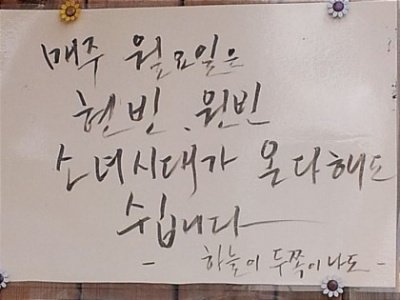 매주 월요일은
현빈, 원빈
소녀시대가 온다해도
쉽니다
- 하늘이 두쪽이 나도 -